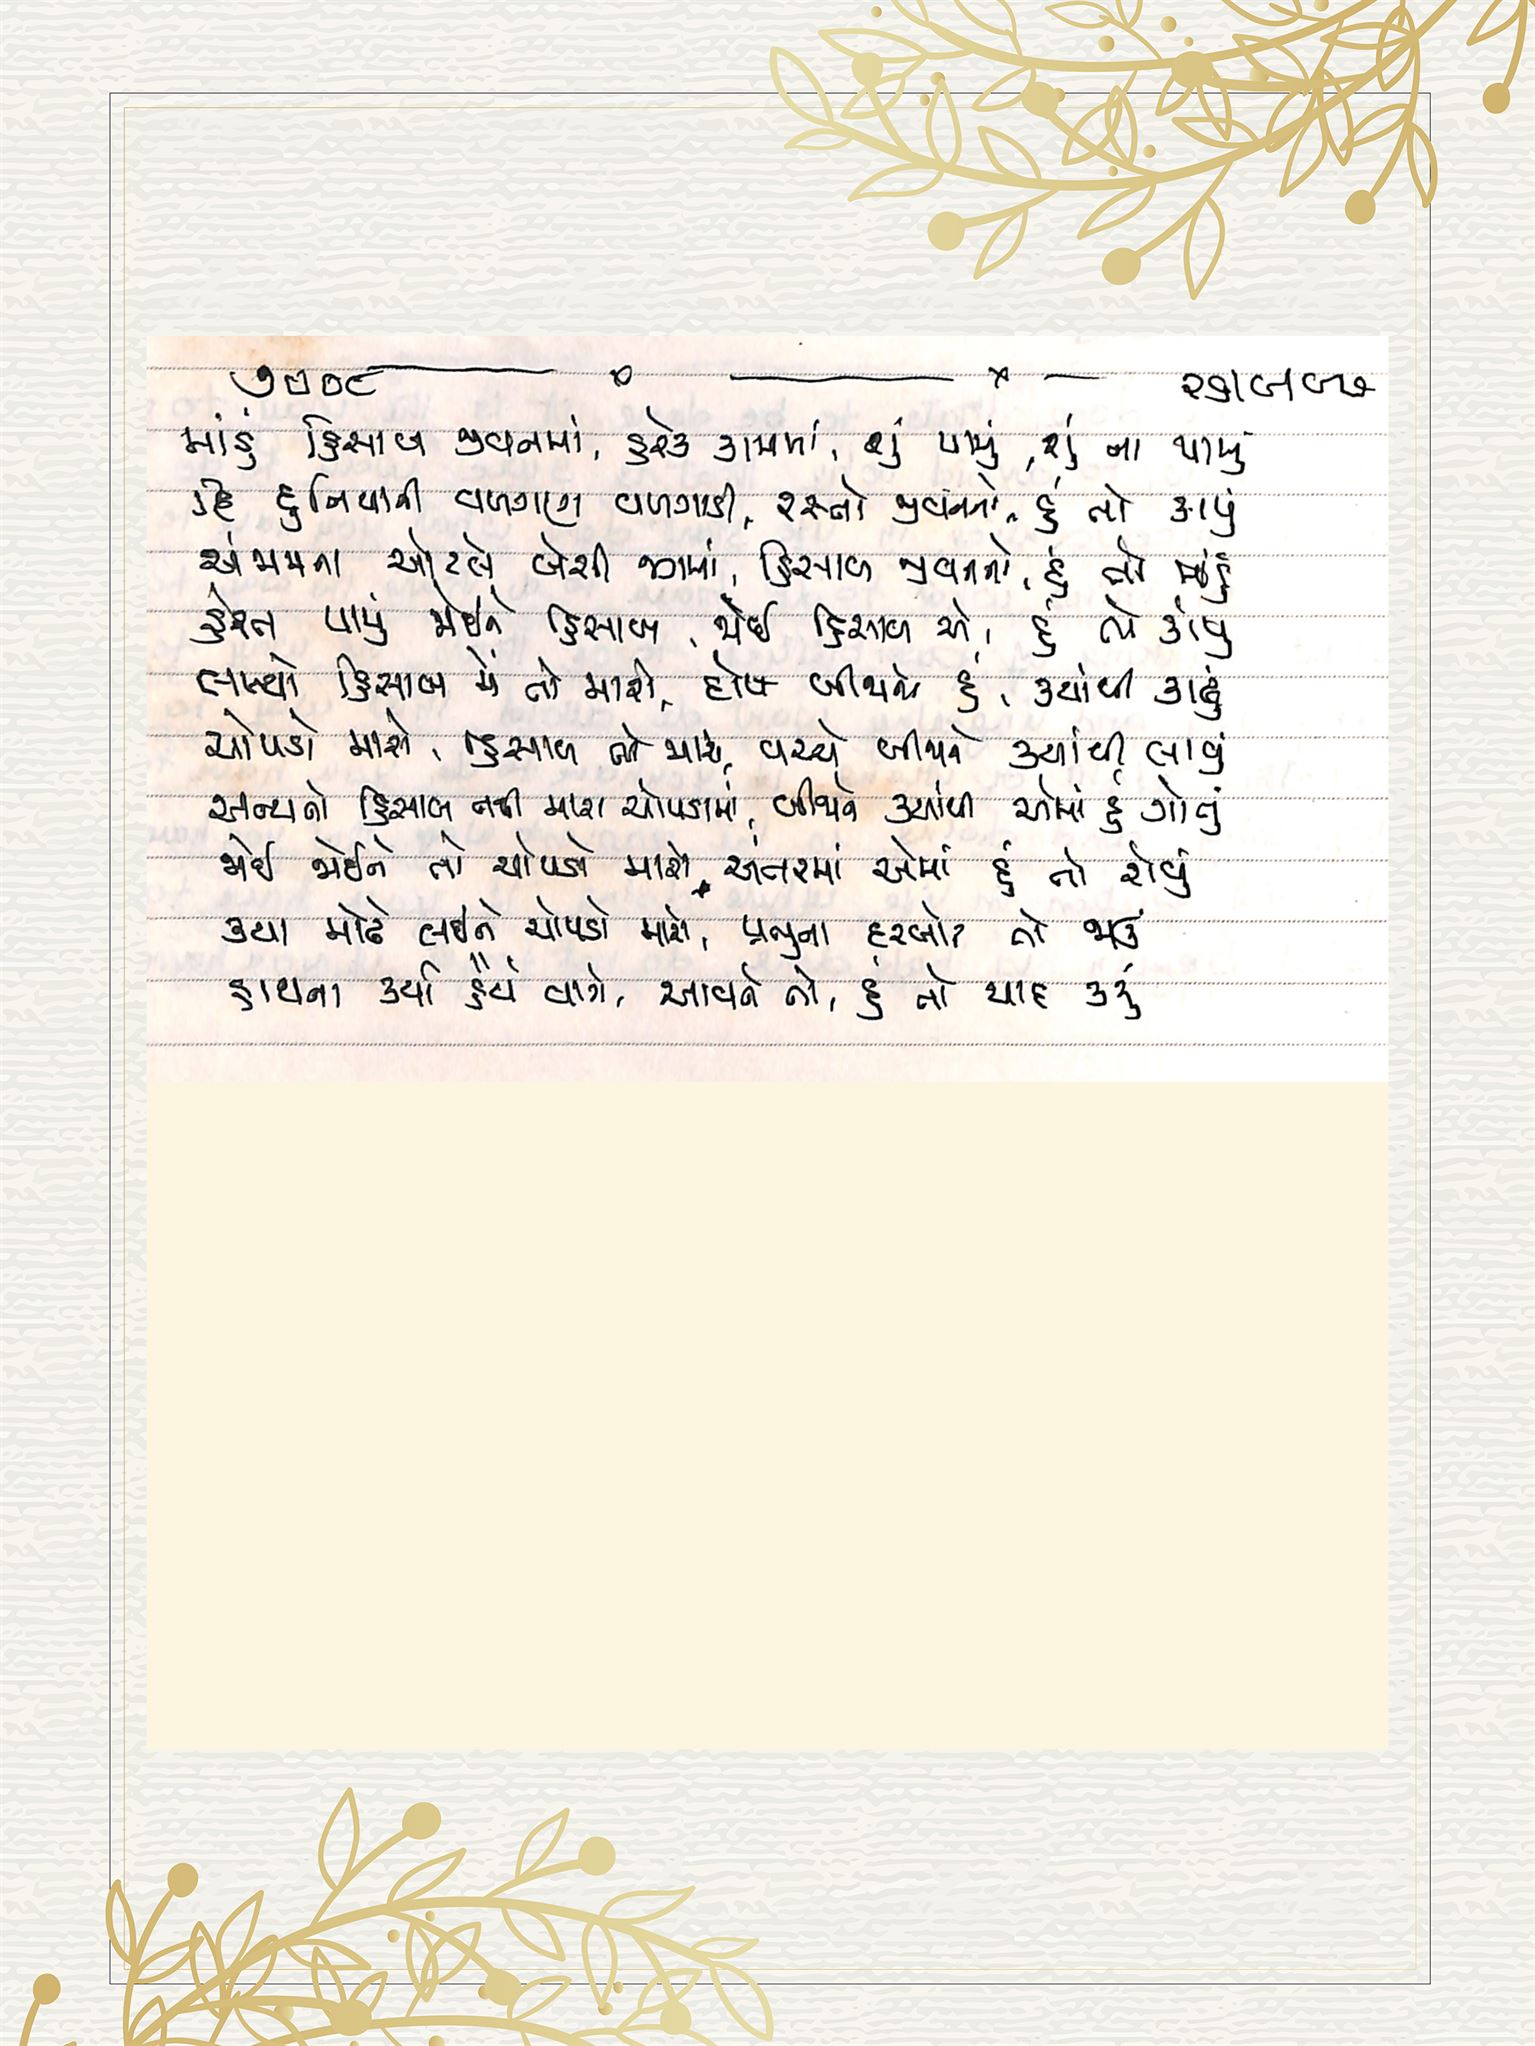 માંડું હિસાબ જીવનમાં, હરેક કામમાં, શું પામું, શું ના પામ્યું
રહિ દુનિયાની વળગણ વળગાડી, રસ્તો જીવનનો, હું તો કાપું
સંયમના ઓટલે બેસી જગમાં, હિસાબ જીવનનો, હું તો માંડું
હેરત પામું જોઈને હિસાબ, જોઈ હિસાબ એ, હું તો કાંપુ
લખ્યો હિસાબ મેં તો મારો, દોષ બીજાને હું, ક્યાંથી કાઢું
ચોપડો મારો, હિસાબ તો મારો, વચ્ચે બીજાને ક્યાંથી લાવું
અન્યનો હિસાબ નથી મારા ચોપડામાં, બીજાને ક્યાંથી એમાં હું ગોતું
જોઈ જોઈને તો ચોપડો મારો, અંતરમાં એમાં હું તો રોવું
કયા મોઢે લઈને ચોપડો મારો, પ્રભુના દરબારે તો જાઉં
હાથના કર્યા હૈયે વાગે, આવને તો, હું તો યાદ કરું